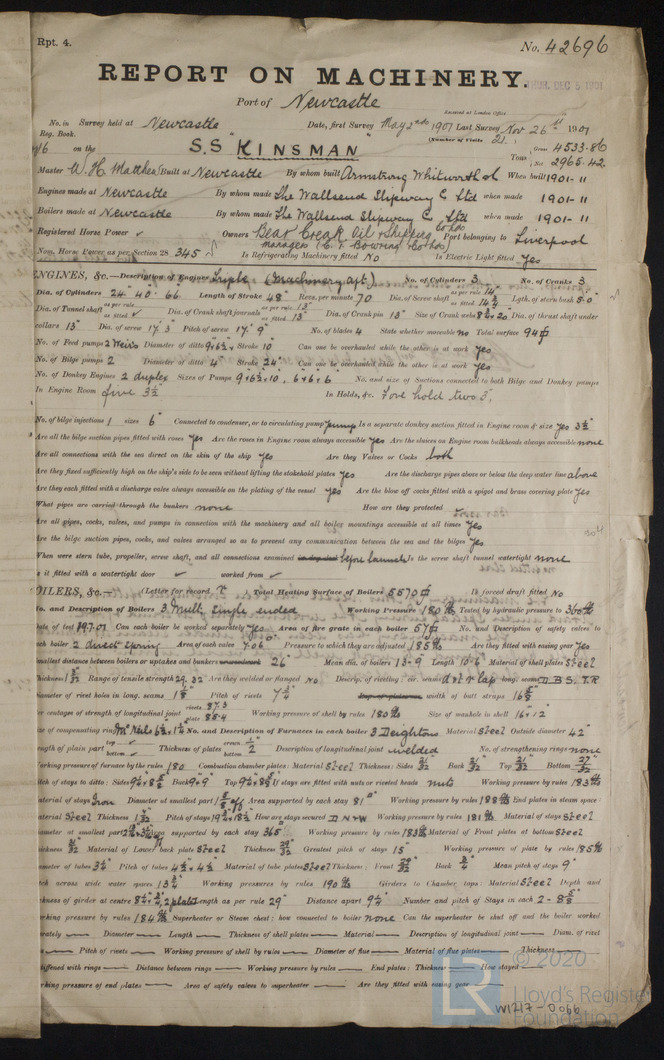 Rpt. 4.
No. 42696
REPORT ON MACHINERY.
THUR. DEC 5 1901
Port of Newcastle
Received at London Office
No. in Survey held at Newcastle Date, first Survey May 2nd 1901 Last Survey Nov 26th 1901
Reg. Book.
(Number of Visits 21)
on the S.S "KINSMAN" Tons Gross 4533.86
Net 2965.42
Master W. H. Matthews Built at Newcastle By whom built Armstrong Whitworth & Co When built 1901-11
Engines made at Newcastle By whom made The Wallsend Slipway Co Ltd when made 1901-11
Boilers made at Newcastle By whom made The Wallsend Slipway Co Ltd when made 1901-11
Registered Horse Power Owners Bear Creek Oil & Shipping Co Ltd Port belonging to Liverpool
managers (C. T. Bowring & Co Ltd)
Nom. Horse Power as per Section 28 345 Is Refrigerating Machinery fitted No Is Electric Light fitted Yes
ENGINES, &c.—Description of Engines Triple (Machinery aft) No. of Cylinders 3 No. of Cranks 3
Dia. of Cylinders 24" 40" 66" Length of Stroke 48" Revs. per minute 70 Dia. of Screw shaft as per rule 14" as fitted Lgth. of stern bush 5-0"
Dia. of Tunnel shaft as per rule as fitted Dia. of Crank shaft journals as per rule 13" as fitted 13" Dia. of Crank pin 13" Size of Crank webs Dia. of thrust shaft under
collars 13" Dia. of screw 17.3 Pitch of screw 17.9" No. of blades 4 State whether moveable no Total surface 94
No. of Feed pumps 2 Weirs Diameter of ditto Stroke 10" Can one be overhauled while the other is at work Yes
No. of Bilge pumps 2 Diameter of ditto 4" Stroke 24" Can one be overhauled while the other is at work Yes
No. of Donkey Engines 2 duplex Sizes of Pumps 9×6½×10, 6×6×6 No. and size of Suctions connected to both Bilge and Donkey pumps
In Engine Room five 3½ In Holds, &c. Fore hold two 3"
No. of bilge injections 1 sizes 6" Connected to condenser, or to circulating pump pump Is a separate donkey suction fitted in Engine room & size Yes 3½"
Are all the bilge suction pipes fitted with roses Yes Are the roses in Engine room always accessible Yes Are the sluices on Engine room bulkheads always accessible none
Are all connections with the sea direct on the skin of the ship Yes Are they Valves or Cocks both
Are they fixed sufficiently high on the ship's side to be seen without lifting the stokehold plates Yes Are the discharge pipes above or below the deep water line above
Are they each fitted with a discharge valve always accessible on the plating of the vessel yes Are the blow off cocks fitted with a spigot and brass covering plate Yes
What pipes are carried through the bunkers none How are they protected
Are all pipes, cocks, valves, and pumps in connection with the machinery and all boiler mountings accessible at all times Yes
Are the bilge suction pipes, cocks, and valves arranged so as to prevent any communication between the sea and the bilges Yes
When were stern tube, propeller, screw shaft, and all connections examined before launch Is the screw shaft tunnel watertight none
is it fitted with a watertight door worked from
BOILERS, &c.— (Letter for record) Total Heating Surface of Boilers 5570 Is forced draft fitted No
No. and Description of Boilers 3 Mult. Single ended Working Pressure 180 lb Tested by hydraulic pressure to 360 lb
Date of test 19.7.01 Can each boiler be worked separately Yes Area of fire grate in each boiler 57 No. and Description of safety valves to
each boiler 2 direct spring Area of each valve 7.06" Pressure to which they are adjusted 185 lb Are they fitted with easing gear Yes
Smallest distance between boilers or uptakes and bunkers 26" Mean dia. of boilers 13-9 Length 10-6 Material of shell plates Steel
Thickness Range of tensile strength 29.32 Are they welded or flanged No Descrip. of riveting: cir. seams d.r. lap long. seams D.B.S. T.R
Diameter of rivet holes in long. seams Pitch of rivets width of butt straps
Percentages of strength of longitudinal joint rivets 87.3 plate 85.4 Working pressure of shell by rules 180 lb Size of manhole in shell 16×12"
Size of compensating ring No. and Description of Furnaces in each boiler 3 Deightons Material Steel Outside diameter 42"
Length of plain part top bottom Thickness of plates crown bottom ½ Description of longitudinal joint welded No. of strengthening rings none
Working pressure of furnace by the rules 180 Combustion chamber plates: Material Steel Thickness: Sides 21/32 Back 21/32 Top 21/32 Bottom 27/32
Pitch of stays to ditto: Sides Back 9×9 Top If stays are fitted with nuts or riveted heads nuts Working pressure by rules 183 lb
Material of stays Iron Diameter at smallest part Area supported by each stay 81" Working pressure by rules 188 lb End plates in steam space:
Material Steel Thickness Pitch of stays How are stays secured D.N+W Working pressure by rules 181 lb Material of stays Steel
Diameter at smallest part Area supported by each stay 365" Working pressure by rules 183 lb Material of Front plates at bottom Steel
Thickness Material of Lower back plate Steel Thickness Greatest pitch of stays 15" Working pressure of plate by rules 185 lb
Diameter of tubes 3¼ Pitch of tubes 4½×4½ Material of tube plates Steel Thickness: Front Back ¾ Mean pitch of stays 9"
Pitch across wide water spaces 13½ Working pressures by rules 190 lb Girders to Chamber tops: Material Steel Depth and
thickness of girder at centre Length as per rule 29" Distance apart 9½" Number and pitch of Stays in each 2-8⅝
Working pressure by rules 184 lb Superheater or Steam chest; how connected to boiler none Can the superheater be shut off and the boiler worked
separately Diameter Length Thickness of shell plates Material Description of longitudinal joint Diam. of rivet
holes Pitch of rivets Working pressure of shell by rules Diameter of flue Material of flue plates Thickness
Stiffened with rings Distance between rings Working pressure by rules End plates: Thickness How stayed
Working pressure of end plates Area of safety valves to superheater Are they fitted with easing gear
© 2020
Lloyd's Register
Foundation
W1217-0066